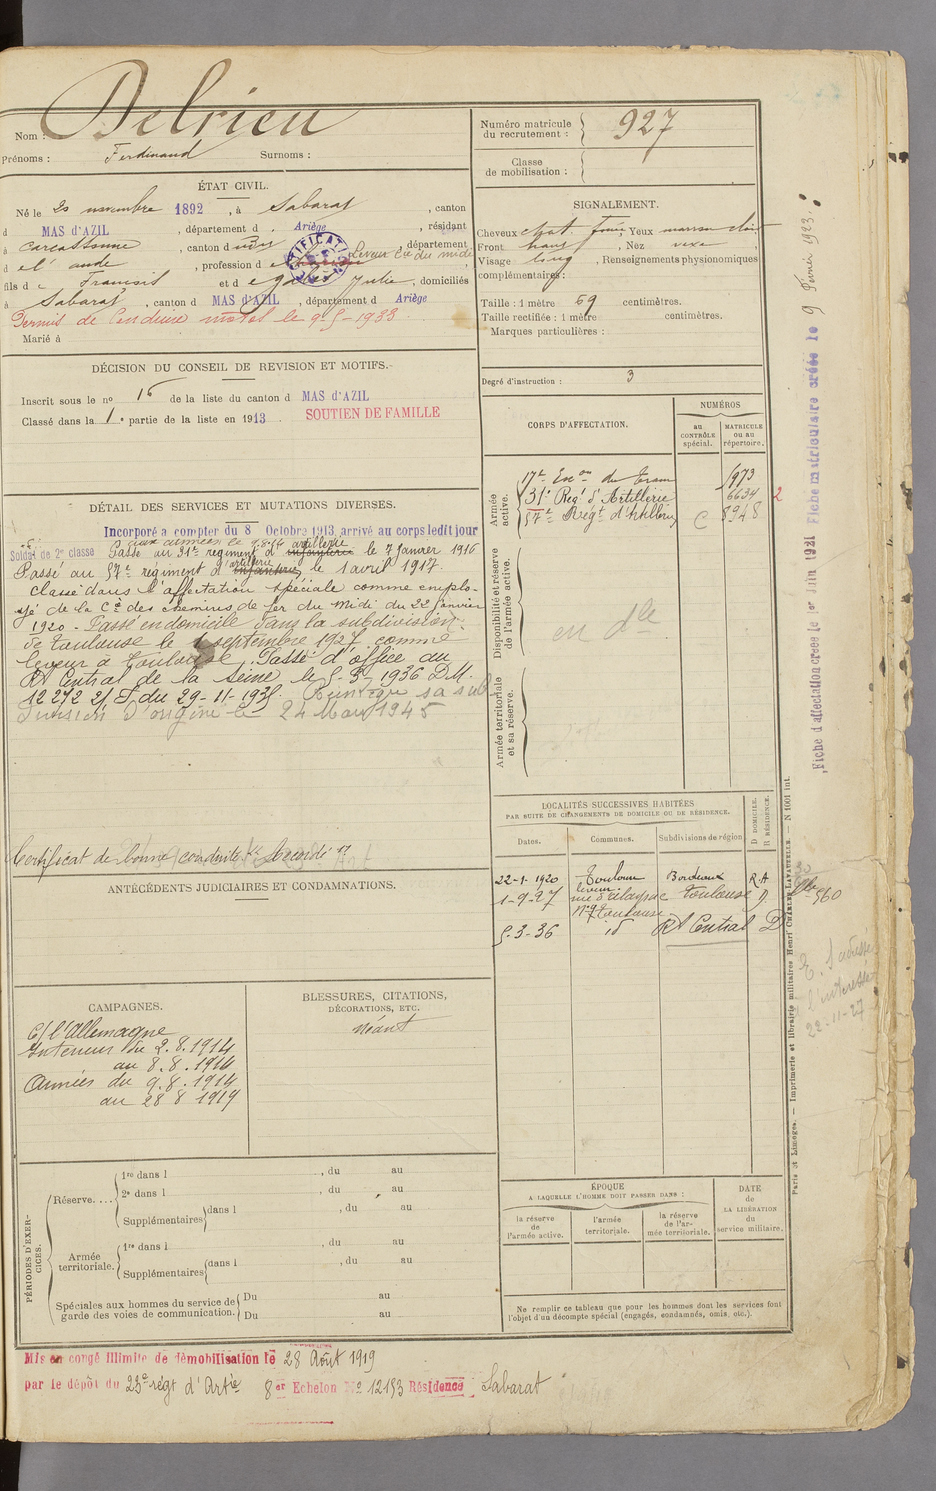 Nom : Delrieu
Prénoms : Ferdinand Surnoms :
Numéro matricule du recrutement : 927
Classe de mobilisation :
ÉTAT CIVIL.
Né le 20 novembre 1892, à Sabarat, canton
d MAS d'AZIL, département d Ariège, résidant
à Carcassonne, canton d udit, département
d el'aude, profession d Leveur Cie du midi
fils d e Francois et d e Julie, domiciliés
à Sabarat, canton d MAS d'AZIL, département d Ariège
Permis de Conduire le 9-5-1933
Marié à
SIGNALEMENT.
Cheveux chat. foncé, Yeux marron clair
Front haut, Nez vexe
Visage long, Renseignements physionomiques
complémentaires :
Taille : 1 mètre 69 centimètres.
Taille rectifiée : 1 mètre centimètres.
Marques particulières :
Degré d'instruction : 3
DÉCISION DU CONSEIL DE REVISION ET MOTIFS.
Inscrit sous le no 16 de la liste du canton d MAS d'AZIL
Classé dans la 1e partie de la liste en 1913 SOUTIEN DE FAMILLE
CORPS D'AFFECTATION.
NUMÉROS
au CONTRÔLE spécial.
MATRICULE ou au répertoire.
Armée active.
17e Escon du train 1973
31e Regt d'Artillerie 6634 2
57e Régt d'Artillerie C 8948
Disponibilité et réserve de l'armée active.
en dle
Armée territoriale et sa réserve.
DÉTAIL DES SERVICES ET MUTATIONS DIVERSES.
Incorporé à compter du 8 Octobre 1913, arrivé au corps ledit jour
aux armées le artillerie
Soldat de 2e classe Passé au 31e regiment d' infanterie le 7 janvier 1916
artillerie
Passé au 57e régiment d' infanterie, le 1 avril 1917.
Classé dans l'affectation spéciale comme emplo-
yé de la Cie des chemins de fer du Midi du 22 janvier
1920 - Passé en domicile dans la subdivision
de Toulouse le 1 septembre 1927 comme
leveur à Toulouse. Passé d'office au
Rt Central de la Seine le 5-3-1936 DM.
12272 2/ du 29-11-1935. Reintégré sa sub
division d'origine le 24 Mars 1945
Certificat de bonne conduite Accordé
ANTÉCÉDENTS JUDICIAIRES ET CONDAMNATIONS.
LOCALITÉS SUCCESSIVES HABITÉES
PAR SUITE DE CHANGEMENTS DE DOMICILE OU DE RÉSIDENCE.
Dates. Communes. Subdivisions de région
D DOMICILE. R RÉSIDENCE.
22-1-1920 Toulouse Bordeaux R.A
1-9-27 leveur Toulouse D.
Toulouse
5-3-36 id Rt Central D
CAMPAGNES.
C/ l'Allemagne
Intérieur du 2.8.1914
au 8.8.1914
Armées du 9.8.1914
au 28 8 1919
BLESSURES, CITATIONS,
DÉCORATIONS, ETC.
néant
PÉRIODES D'EXERCICES.
Réserve....
1re dans l , du au
2e dans l , du au
Supplémentaires dans l , du au
Armée territoriale.
1re dans l , du au
Supplémentaires dans l , du au
Spéciales aux hommes du service de garde des voies de communication.
Du au
Du au
ÉPOQUE
A LAQUELLE L'HOMME DOIT PASSER DANS :
la réserve de l'armée active.
l'armée territoriale.
la réserve de l'armée territoriale.
DATE de LA LIBÉRATION du service militaire.
Ne remplir ce tableau que pour les hommes dont les services font
l'objet d'un décompte spécial (engagés, condamnés, omis, etc.).
Mis en congé illimité de démobilisation le 28 Août 1919
par le dépôt du 23e régt d'Artie 8er Echelon No 12153 Résidence Sabarat
Fiche d'affectation créée le 1er Juin 1921 Fiche matriculaire créée le 9 Février 1923.
Paris et Limoges. — Imprimerie et librairie militaires Henri CHARLES-LAVAUZELLE. — N 1001 int.
560
22-11-27